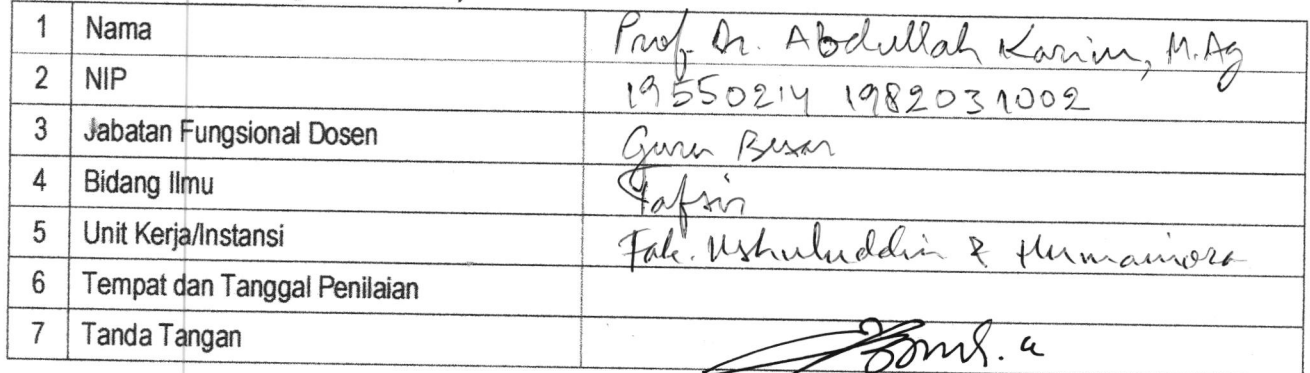 1 Nama Prof. Dr. Abdullah Karim, M.Ag
2 NIP 19550214 198203 1002
3 Jabatan Fungsional Dosen Guru Besar
4 Bidang Ilmu Tafsir
5 Unit Kerja/Instansi Fak. Ushuluddin & Humaniora
6 Tempat dan Tanggal Penilaian
7 Tanda Tangan